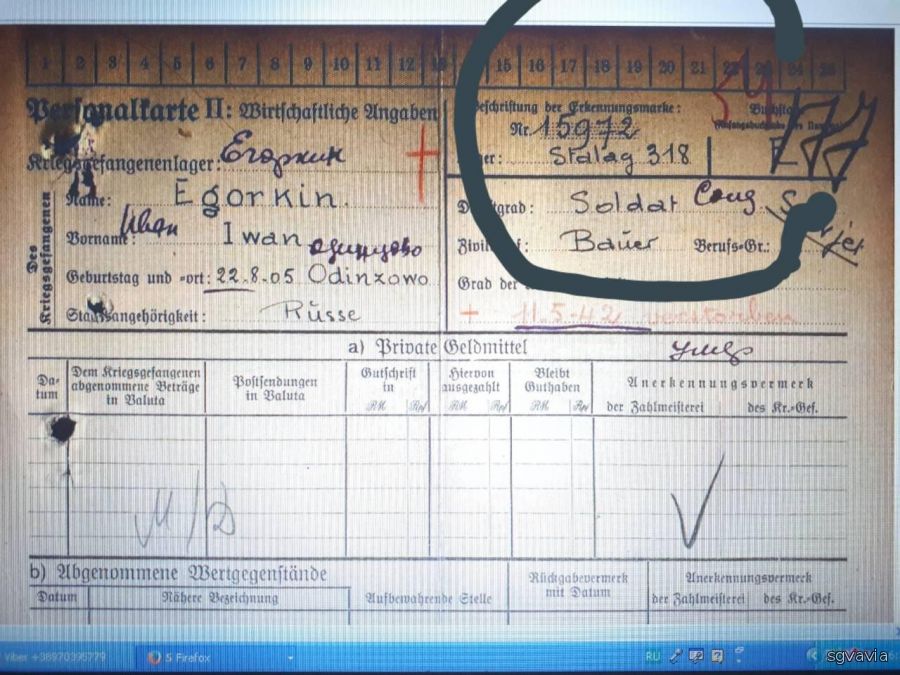 1 2 3 4 5 6 7 8 9 10 11 12 13 15 16 17 18 19 20 21 22 24
Personalkarte II: Wirtschaftliche Angaben
Beschriftung der Erkennungsmarke:
Nr. 15972
Kriegsgefangenenlager: Егоркин
Stalag 318
Des Kriegsgefangenen
Name: Egorkin.
Soldat Солд
Vorname: Иван Iwan Одинцово
Bauer Berufs-Gr.:
Geburtstag und -ort: 22.8.05 Odinzowo
Grad der
Staatsangehörigkeit: Russe
+ 11.5.42 verstorben
умер
a) Private Geldmittel
Datum
Dem Kriegsgefangenen abgenommene Beträge in Valuta
Postsendungen in Valuta
Gutschrift in
RM Rpf
Hiervon ausgezahlt
RM Rpf
Bleibt Guthaben
RM Rpf
Anerkennungsvermerk
der Zahlmeisterei des Kr.-Gef.
b) Abgenommene Wertgegenstände
Datum Nähere Bezeichnung
Aufbewahrende Stelle
Rückgabevermerk mit Datum
Anerkennungsvermerk
der Zahlmeisterei des Kr.-Gef.
Viber +38970395779
5 Firefox
RU
sgvavia